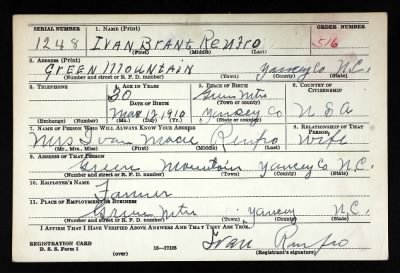 SERIAL NUMBER 1. NAME (Print) ORDER NUMBER
1248 IVAN BRANT RENFRO 516
(First) (Middle) (Last)
2. ADDRESS (Print)
GREEN MOUNTAIN Yancey Co N.C.
(Number and street or R. F. D. number) (Town) (County) (State)
3. TELEPHONE 4. AGE IN YEARS 5. PLACE OF BIRTH 6. COUNTRY OF CITIZENSHIP
30 Green Mtn
(Town or county)
DATE OF BIRTH
Mar 1910 Yancey Co U S A
(Exchange) (Number) (Mo.) (Day) (Yr.) (State or country)
7. NAME OF PERSON WHO WILL ALWAYS KNOW YOUR ADDRESS 8. RELATIONSHIP OF THAT PERSON
Mrs Ivan Renfro Wife
(Mr., Mrs., Miss) (First) (Middle) (Last)
9. ADDRESS OF THAT PERSON
Green Mountain Yancey Co N.C.
(Number and street or R. F. D. number) (Town) (County) (State)
10. EMPLOYER'S NAME
Farmer
11. PLACE OF EMPLOYMENT OR BUSINESS
Green Mtn Yancey N.C.
(Number and street or R. F. D. number) (Town) (County) (State)
I AFFIRM THAT I HAVE VERIFIED ABOVE ANSWERS AND THAT THEY ARE TRUE.
REGISTRATION CARD
D. S. S. Form 1 16—17105 Ivan Renfro
(over) (Registrant's signature)